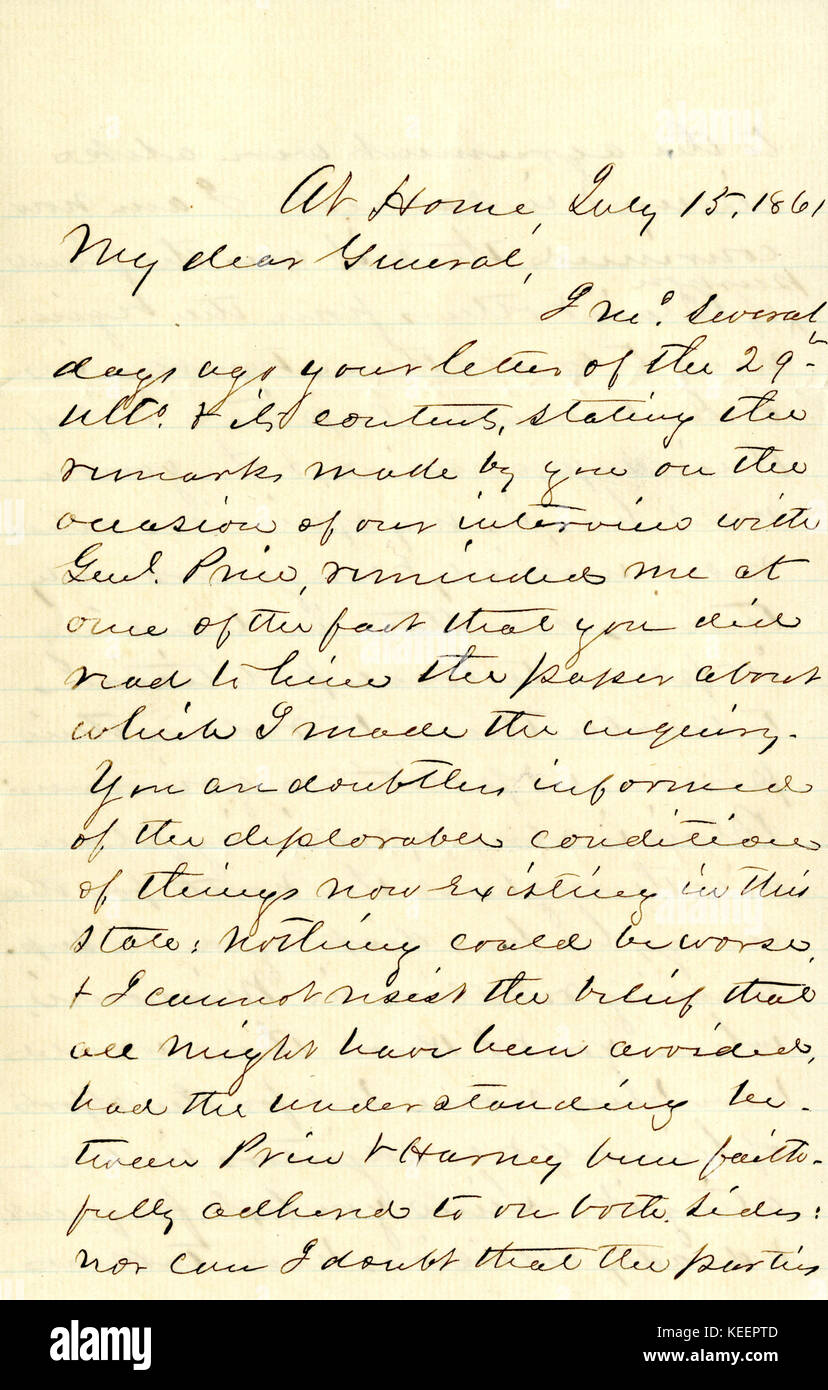 At Home, July 15, 1861
My dear General,
I rec'd. several
days ago your letter of the 29th
ulto. & its contents, stating the
remarks made by you on the
occasion of our interview with
Genl. Price, reminded me at
once of the fact that you did
read to him the paper about
which I made the inquiry.
You are doubtless informed
of the deplorable condition
of things now existing in this
State: nothing could be worse,
& I cannot resist the belief that
all might have been avoided,
had the understanding be-
tween Price & Harney been faith-
fully adhered to on both sides:
nor can I doubt that the parties
alamy
Image ID: KEEPTD
www.alamy.com